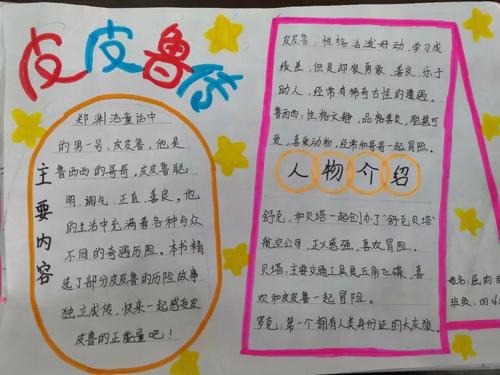 皮皮鲁传
主要内容
郑渊洁童话中
的男一号，皮皮鲁，他是
鲁西西的哥哥，皮皮鲁聪
明、淘气、正直、善良，他
的生活中充满着各种与众
不同的奇遇历险。本书精
选了部分皮皮鲁的历险故事
独立成传，快来一起感受皮
皮鲁的正能量吧！
皮皮鲁：性格活泼好动，学习成
绩差，但是却很勇敢、善良、乐于
助人，经常有稀奇古怪的遭遇。
鲁西西：性格文静，品格善良，聪慧可
爱，喜爱动物，经常和哥哥一起冒险。
人物介绍
舒克：和贝塔一起创办了“舒克贝塔”
航空公司，正义感强，喜欢冒险。
贝塔：主要交通工具是五角飞碟，喜
欢和皮皮鲁一起冒险。
罗克：第一个拥有人类身份证的大灰狼。
姓名：
班级：